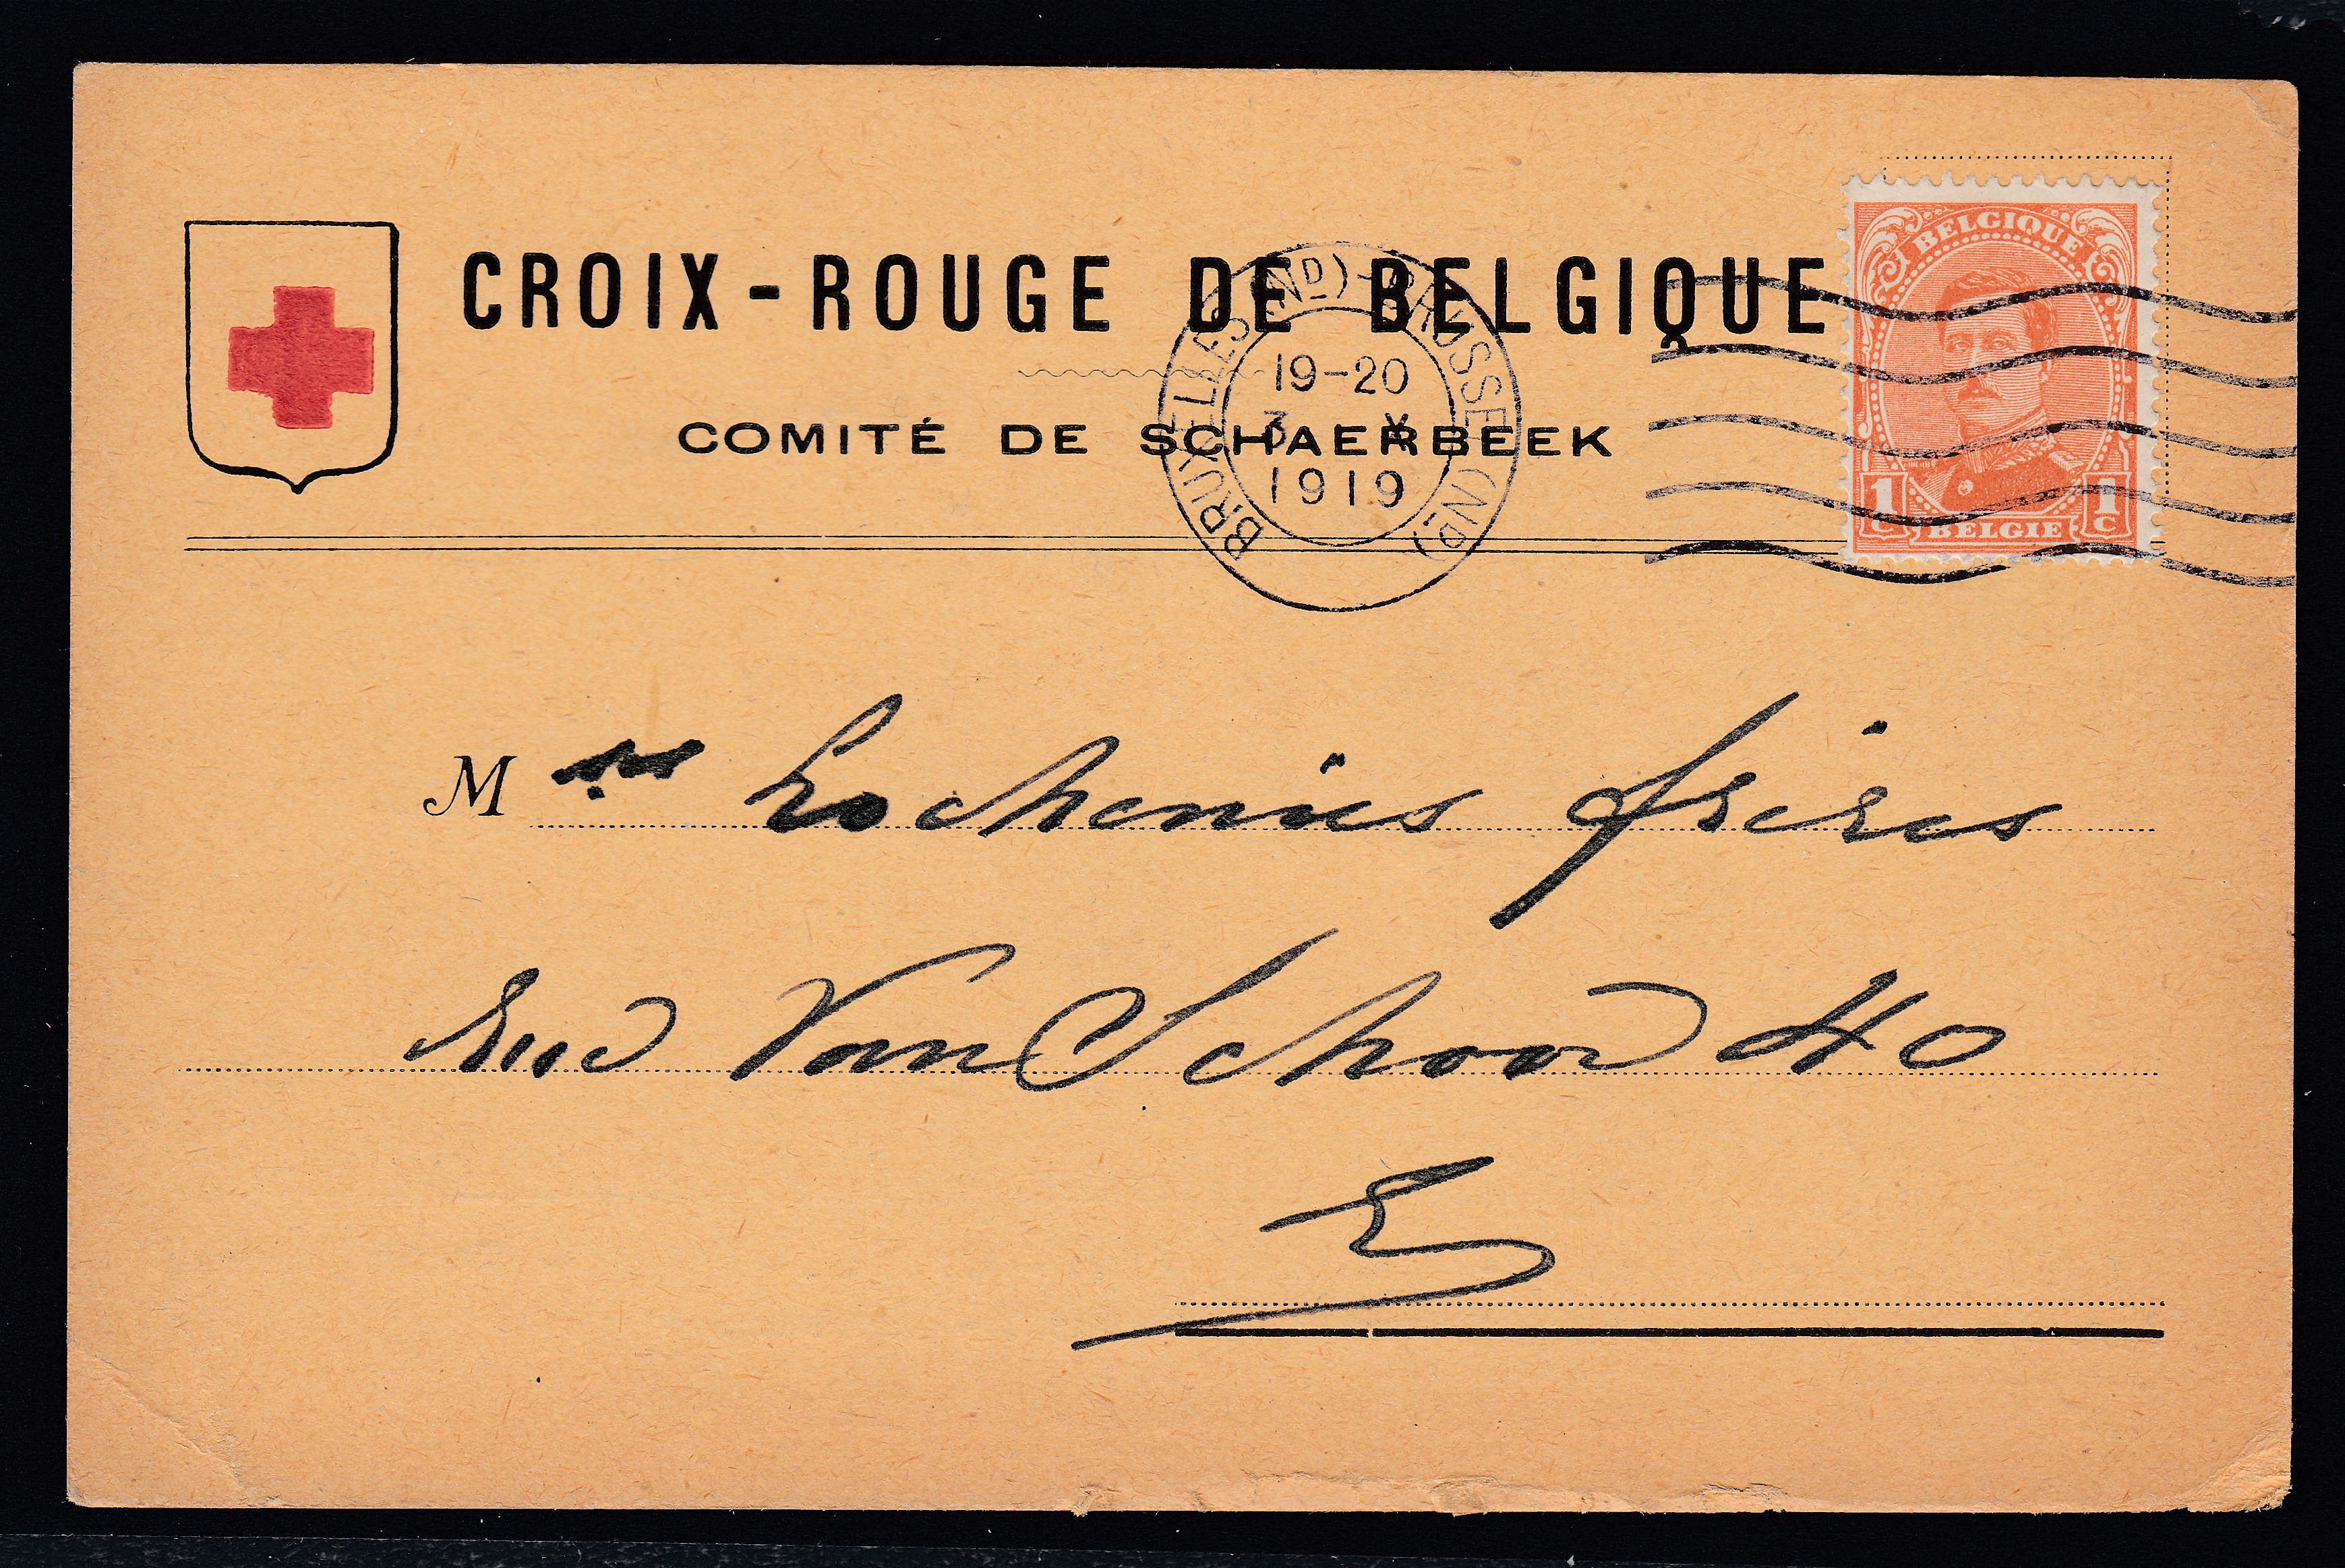 CROIX-ROUGE DE BELGIQUE
COMITÉ DE SCHAERBEEK
BRUXELLES (ND)-BRUSSEL (ND)
19-20
3 X
1919
BELGIQUE
1C 1C
BELGIE
M rs frères
Van Schoor 40